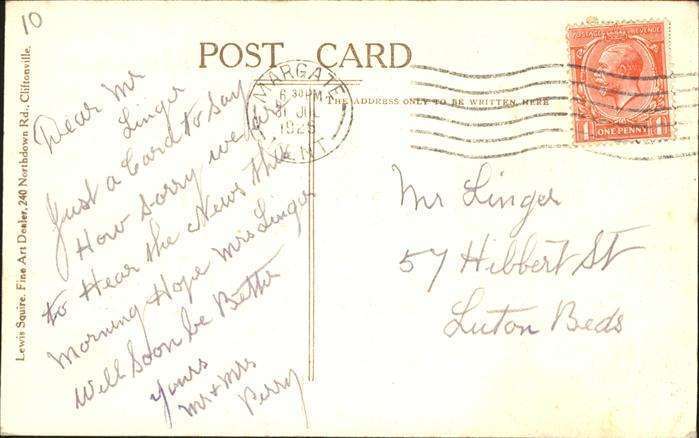 10
POST CARD
THE ADDRESS ONLY TO BE WRITTEN HERE
POSTAGE REVENUE
ONE PENNY
1 1
MARGATE
6 30 PM
31 JUL
1925
KENT
Dear Mr
Linger
Just a Card to Say
How Sorry we are
to Hear the News this
Morning Hope Mrs Linger
Will Soon be Better
Yours
Mr + Mrs
Perry
Mr Linger
57 Hibbert St
Luton Beds
Lewis Squire, Fine Art Dealer, 240 Northdown Rd., Cliftonville.